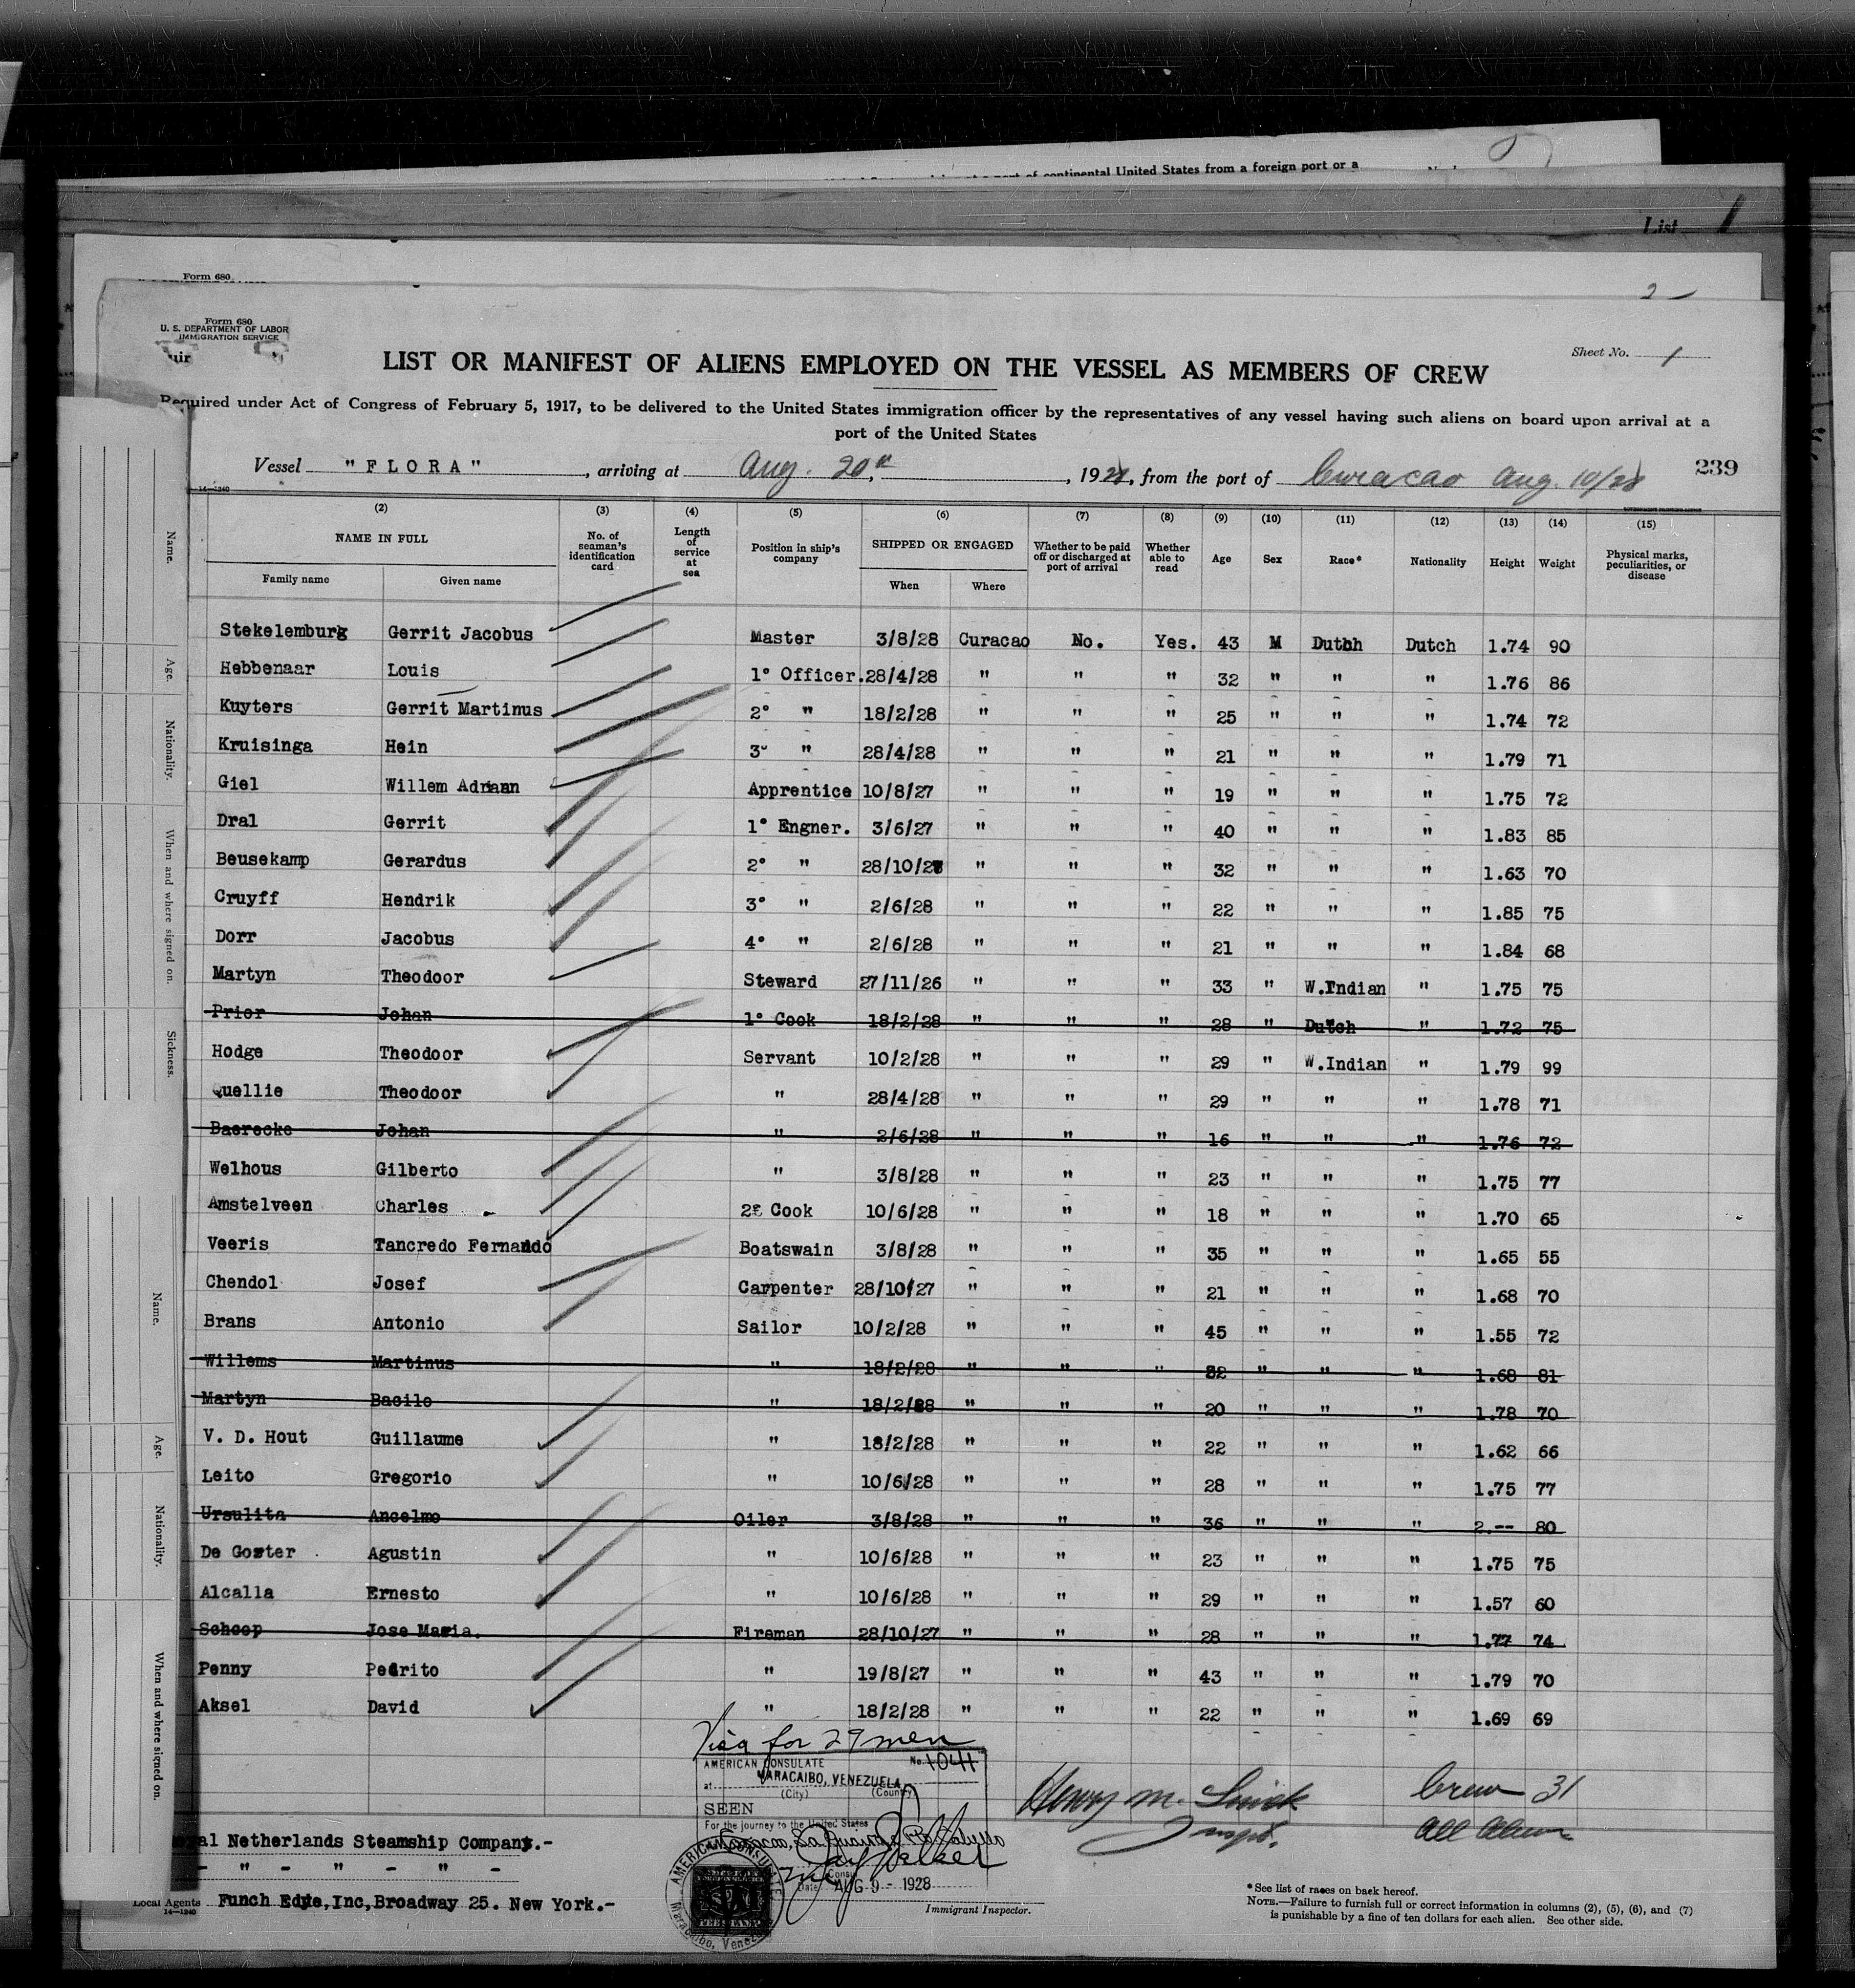 continental United States from a foreign port or a
List 1
Form 680
2
Form 680
U. S. DEPARTMENT OF LABOR
IMMIGRATION SERVICE
Sheet No. 1
LIST OR MANIFEST OF ALIENS EMPLOYED ON THE VESSEL AS MEMBERS OF CREW
Required under Act of Congress of February 5, 1917, to be delivered to the United States immigration officer by the representatives of any vessel having such aliens on board upon arrival at a
port of the United States
Vessel "FLORA", arriving at Aug. 20th, 1928, from the port of Curacao Aug. 10/28 239
14—1240
(2) (3) (4) (5) (6) (7) (8) (9) (10) (11) (12) (13) (14) (15)
NAME IN FULL No. of seaman's identification card Length of service at sea Position in ship's company SHIPPED OR ENGAGED Whether to be paid off or discharged at port of arrival Whether able to read Age Sex Race* Nationality Height Weight Physical marks, peculiarities, or disease
Family name Given name When Where
Stekelemburg Gerrit Jacobus Master 3/8/28 Curacao No. Yes. 43 M Dutch Dutch 1.74 90
Hebbenaar Louis 1° Officer. 28/4/28 " " " 32 " " " 1.76 86
Kuyters Gerrit Martinus 2° " 18/2/28 " " " 25 " " " 1.74 72
Kruisinga Hein 3° " 28/4/28 " " " 21 " " " 1.79 71
Giel Willem Adriaan Apprentice 10/8/27 " " " 19 " " " 1.75 72
Dral Gerrit 1° Engner. 3/6/27 " " " 40 " " " 1.83 85
Beusekamp Gerardus 2° " 28/10/27 " " " 32 " " " 1.63 70
Cruyff Hendrik 3° " 2/6/28 " " " 22 " " " 1.85 75
Dorr Jacobus 4° " 2/6/28 " " " 21 " " " 1.84 68
Martyn Theodoor Steward 27/11/26 " " " 33 " W.Indian " 1.75 75
Prior Johan 1° Cook 18/2/28 " " " 28 " Dutch " 1.72 75
Hodge Theodoor Servant 10/2/28 " " " 29 " W.Indian " 1.79 99
Quellie Theodoor " 28/4/28 " " " 29 " " " 1.78 71
Baerecke Johan " 2/6/28 " " " 16 " " " 1.76 72
Welhous Gilberto " 3/8/28 " " " 23 " " " 1.75 77
Amstelveen Charles 2° Cook 10/6/28 " " " 18 " " " 1.70 65
Veeris Tancredo Fernando Boatswain 3/8/28 " " " 35 " " " 1.65 55
Chendol Josef Carpenter 28/10/27 " " " 21 " " " 1.68 70
Brans Antonio Sailor 10/2/28 " " " 45 " " " 1.55 72
Willems Martinus " 18/2/28 " " " 32 " " " 1.68 81
Martyn Basilo " 18/2/28 " " " 20 " " " 1.78 70
V. D. Hout Guillaume " 18/2/28 " " " 22 " " " 1.62 66
Leito Gregorio " 10/6/28 " " " 28 " " " 1.75 77
Ursulita Ancelmo Oiler 3/8/28 " " " 36 " " " 2.-- 80
De Goster Agustin " 10/6/28 " " " 23 " " " 1.75 75
Alcalla Ernesto " 10/6/28 " " " 29 " " " 1.57 60
Schoop Jose Maria. Fireman 28/10/27 " " " 28 " " " 1.77 74
Penny Pedrito " 19/8/27 " " " 43 " " " 1.79 70
Aksel David " 18/2/28 " " " 22 " " " 1.69 69
Visa for 29 men
AMERICAN CONSULATE No. 1041
at MARACAIBO, VENEZUELA
(City) (Country)
SEEN
For the journey to the United States
Consul
Date: AUG 9 - 1928
AMERICAN CONSULATE
Maracaibo, Venezuela
FEE STAMP
Henry M.
Inspt.
Crew 31
All Aliens
Netherlands Steamship Company.-
- " - " - " -
Local Agents Funch Edye,Inc,Broadway 25. New York.-
14—1240
Immigrant Inspector.
*See list of races on back hereof.
NOTE.—Failure to furnish full or correct information in columns (2), (5), (6), and (7)
is punishable by a fine of ten dollars for each alien. See other side.
Name.
Age.
Nationality.
When and where signed on.
Sickness.
Name.
Age.
Nationality.
When and where signed on.